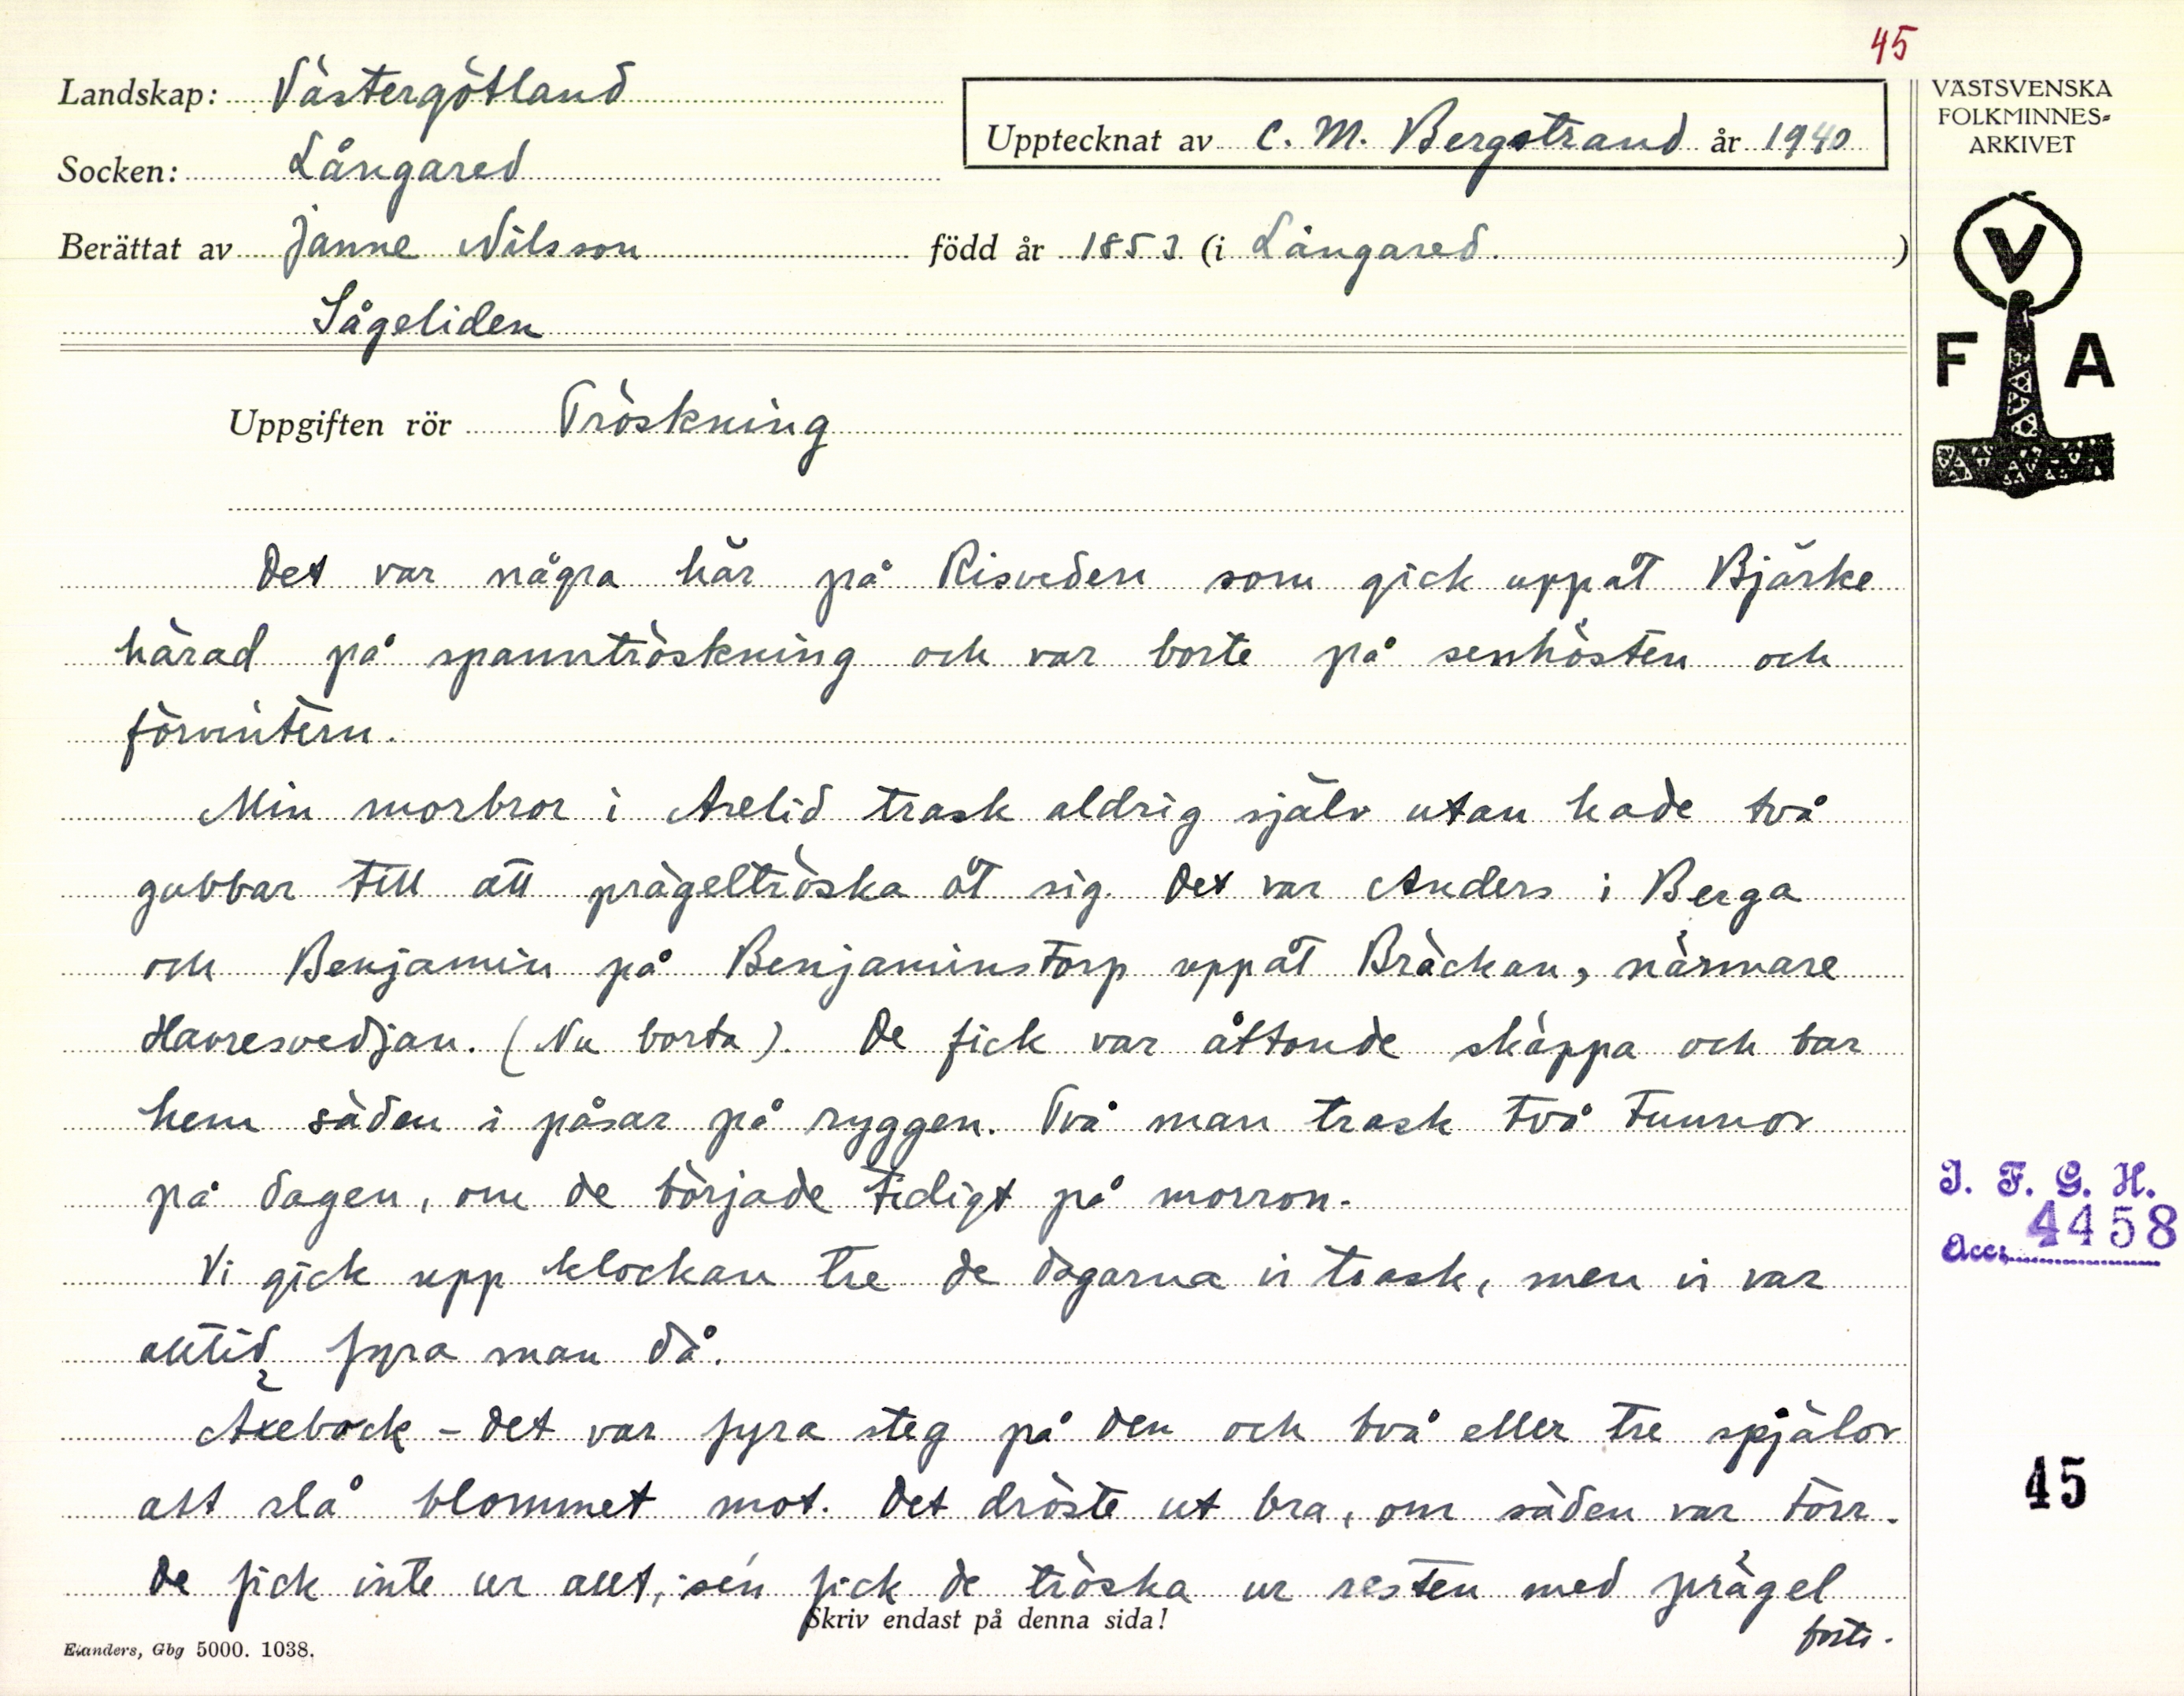 45
Landskap: Västergötland
Upptecknat av C. M. Bergstrand år 1940
Socken: Långared
Berättat av Janne Nilsson född år 1853 (i Långared.)
Sågeliden
VÄSTSVENSKA
FOLKMINNES-
ARKIVET
V
F A
Uppgiften rör Tröskning
Det var några här på Risveden som gick uppåt Bjärke
härad på spanntröskning och var borte på senhösten och
förvintern.
Min morbror i Aselid trask aldrig själv utan hade två
gubbar till att prägeltröska åt sig. Det var Anders i Berga
och Benjamin på Benjaminstorp uppåt Bräckan, närmare
Havresvedjan. (Nu borta). De fick var åttonde skäppa och bar
hem säden i påsar på ryggen. Två man trask två tunnor
på dagen, om de började tidigt på morron.
Vi gick upp klockan tre de dagarna vi trask, men vi var
alltid fyra man då.
Axebock - det var fyra steg på den och två eller tre spjälor
att slå blommet mot. Det dröste ut bra, om säden var torr.
De fick inte ur allt, sén fick de tröska ur resten med prägel
forts.
Skriv endast på denna sida!
Elanders, Gbg 5000. 1038.
I. F. G. H.
Acc. 4458
45